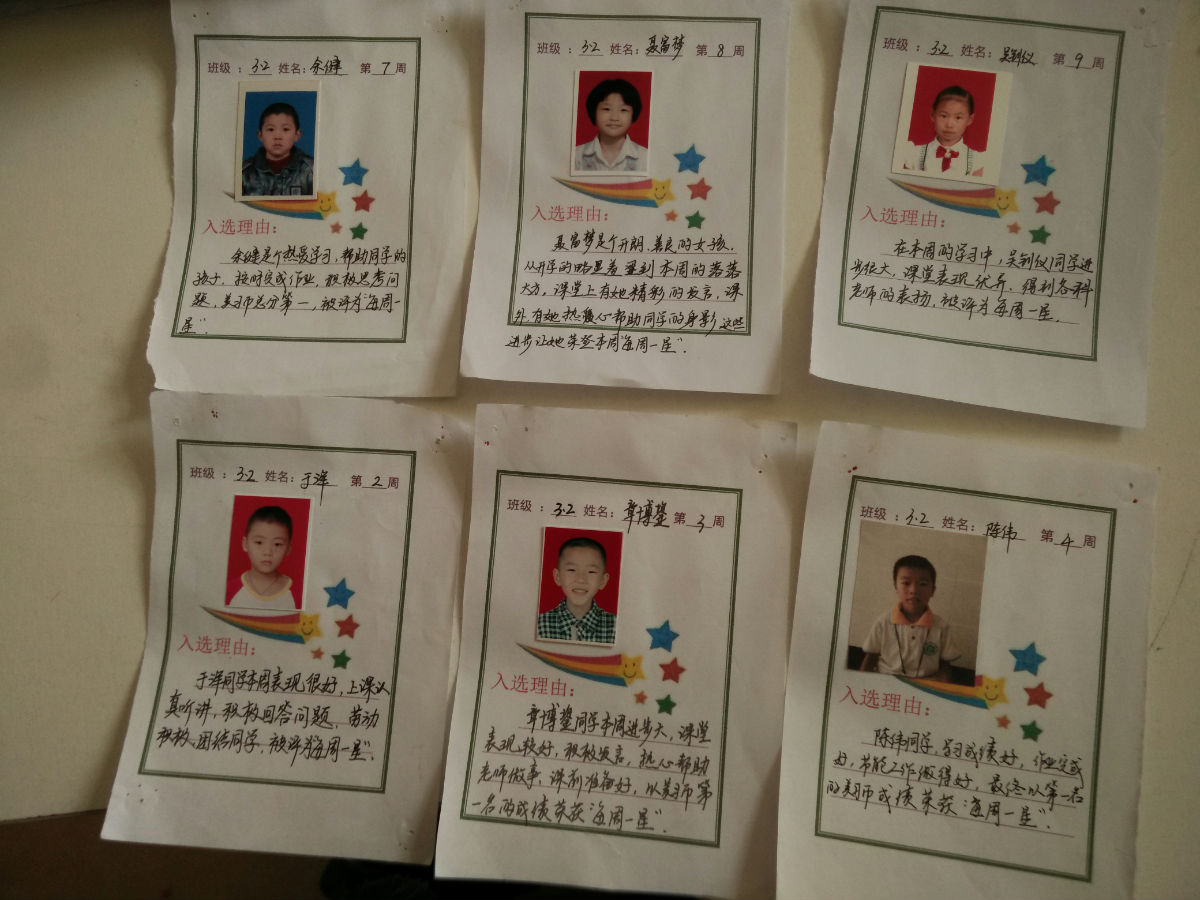 班级：3.2 姓名：余健 第 7 周
入选理由：
余健是个热爱学习，帮助同学的
孩子，按时完成作业，积极思考问
题，美币总分第一，被评为“每周一
星”.
班级：3.2 姓名：聂富梦 第 8 周
入选理由：
聂富梦是个开朗、善良的女孩，
从开学的略显羞涩到本周的落落
大方，课堂上有她精彩的发言，课
外有她热心帮助同学的身影，这些
进步让她荣登本周“每周一星”.
班级：3.2 姓名：吴钊仪 第 9 周
入选理由：
在本周的学习中，吴钊仪同学进
步很大，课堂表现优异，得到各科
老师的表扬，被评为每周一星.
班级：3.2 姓名：于洋 第 2 周
入选理由：
于洋同学本周表现很好，上课认
真听讲，积极回答问题，劳动
积极，团结同学，被评为“每周一星”.
班级：3.2 姓名：章博鋆 第 3 周
入选理由：
章博鋆同学本周进步大，课堂
表现较好，积极发言，热心帮助
老师做事，课前准备好，以美币第
一名的成绩荣获“每周一星”.
班级：3.2 姓名：陈伟 第 4 周
入选理由：
陈伟同学，学习成绩好，作业完成
好，节能工作做得好，最终以第一名
的美币成绩荣获“每周一星”.